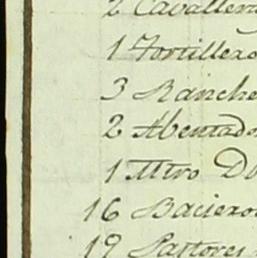 2 Cavallero
1 Tortillero
3 Ranche
2 Abentado
1 Mtro Do
16 Bacieros
19 Pastores